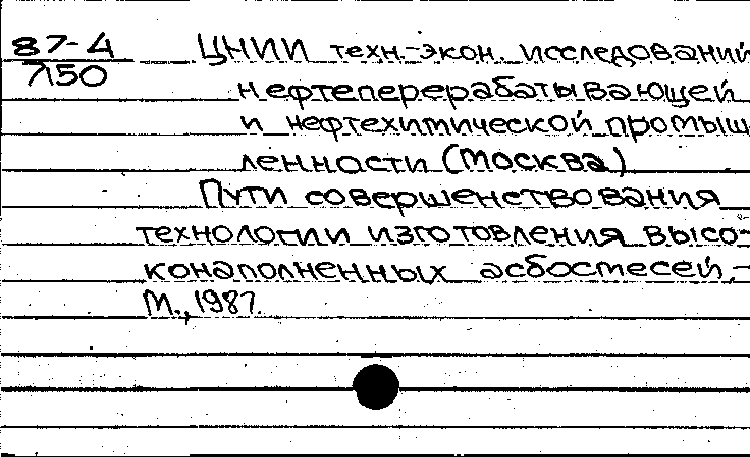 87-4 ЦНИИ техн.-экон. исследований
7150
нефтеперерабатывающей
и нефтехимической промыш
ленности (Москва)
Пути совершенствования
технологии изготовления высо-
конаполненных асбосмесей,-
М., 1987.